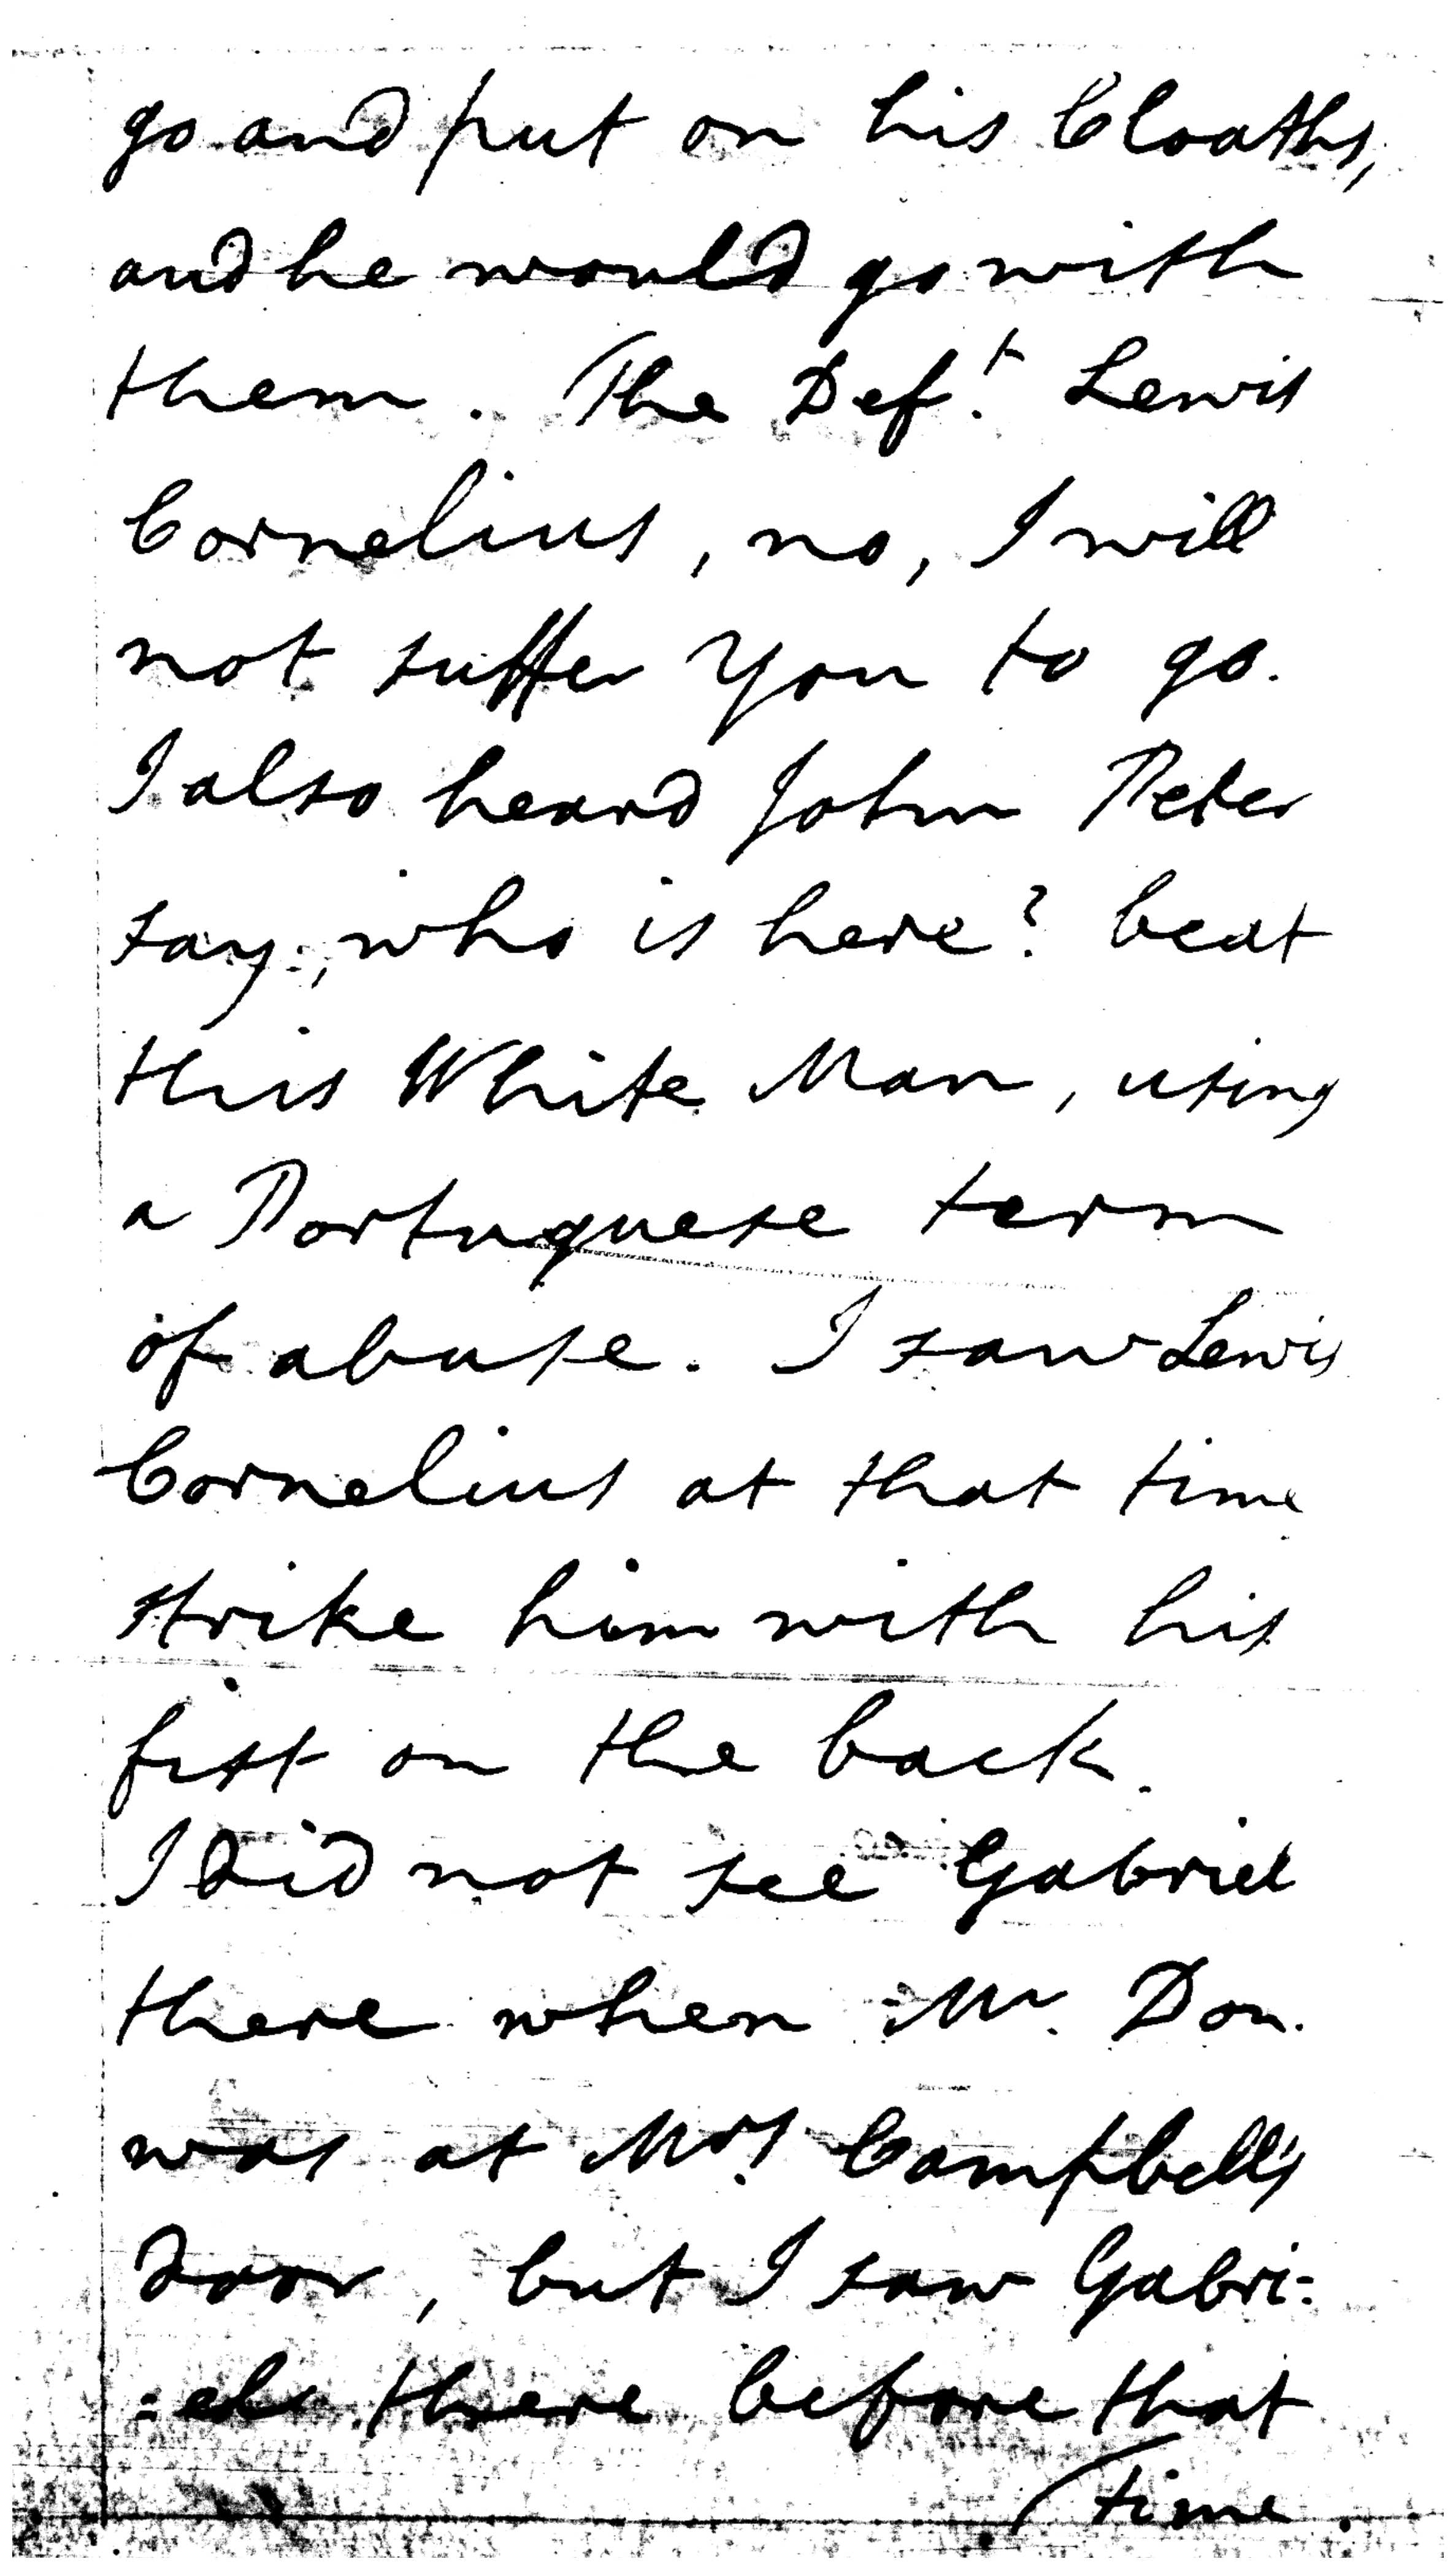 go and put on his Cloaths,
and he would go with
them. The Def.t Lewis
Cornelius, no, I will
not suffer you to go.
I also heard John Peter
say, who is here? beat
this White Man, using
a Portuguese term
of abuse. I saw Lewis
Cornelius at that time
strike him with his
fist on the back.
I did not see Gabriel
there when Mr. Don.
was at Mrs. Campbell's
door, but I saw Gabri=
=els there before that
time.